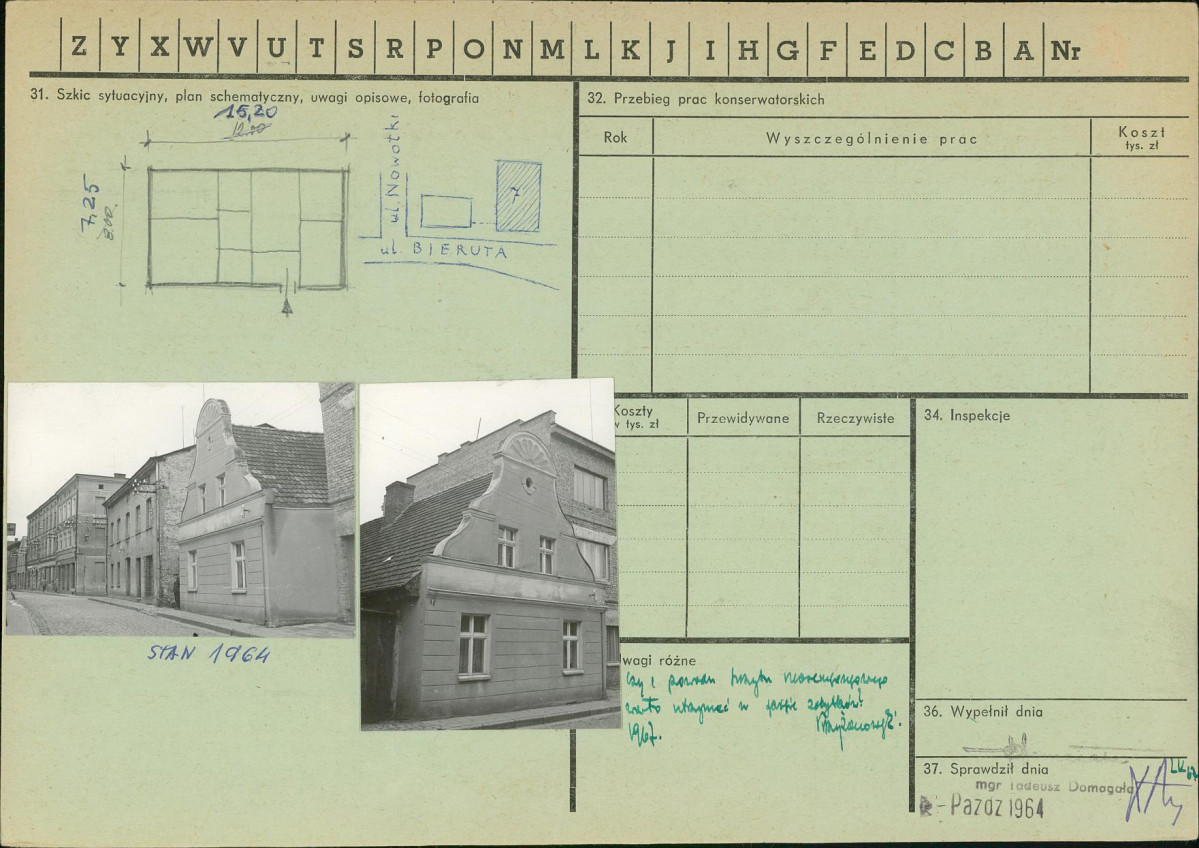 Z Y X W V U T S R P O N M L K J I H G F E D C B A Nr
31. Szkic sytuacyjny, plan schematyczny, uwagi opisowe, fotografia
15,20
12.00
7,25
8.00.
ul. Nowotki
7
ul. BIERUTA
STAN 1964
32. Przebieg prac konserwatorskich
Rok Wyszczególnienie prac Koszt
tys. zł
Koszty Przewidywane Rzeczywiste
w tys. zł
34. Inspekcje
wagi różne
czy z powodu
warto utrzymać w zabytków?
1967.
36. Wypełnił dnia
37. Sprawdził dnia
mgr Tadeusz Domagała
Pazdz 1964